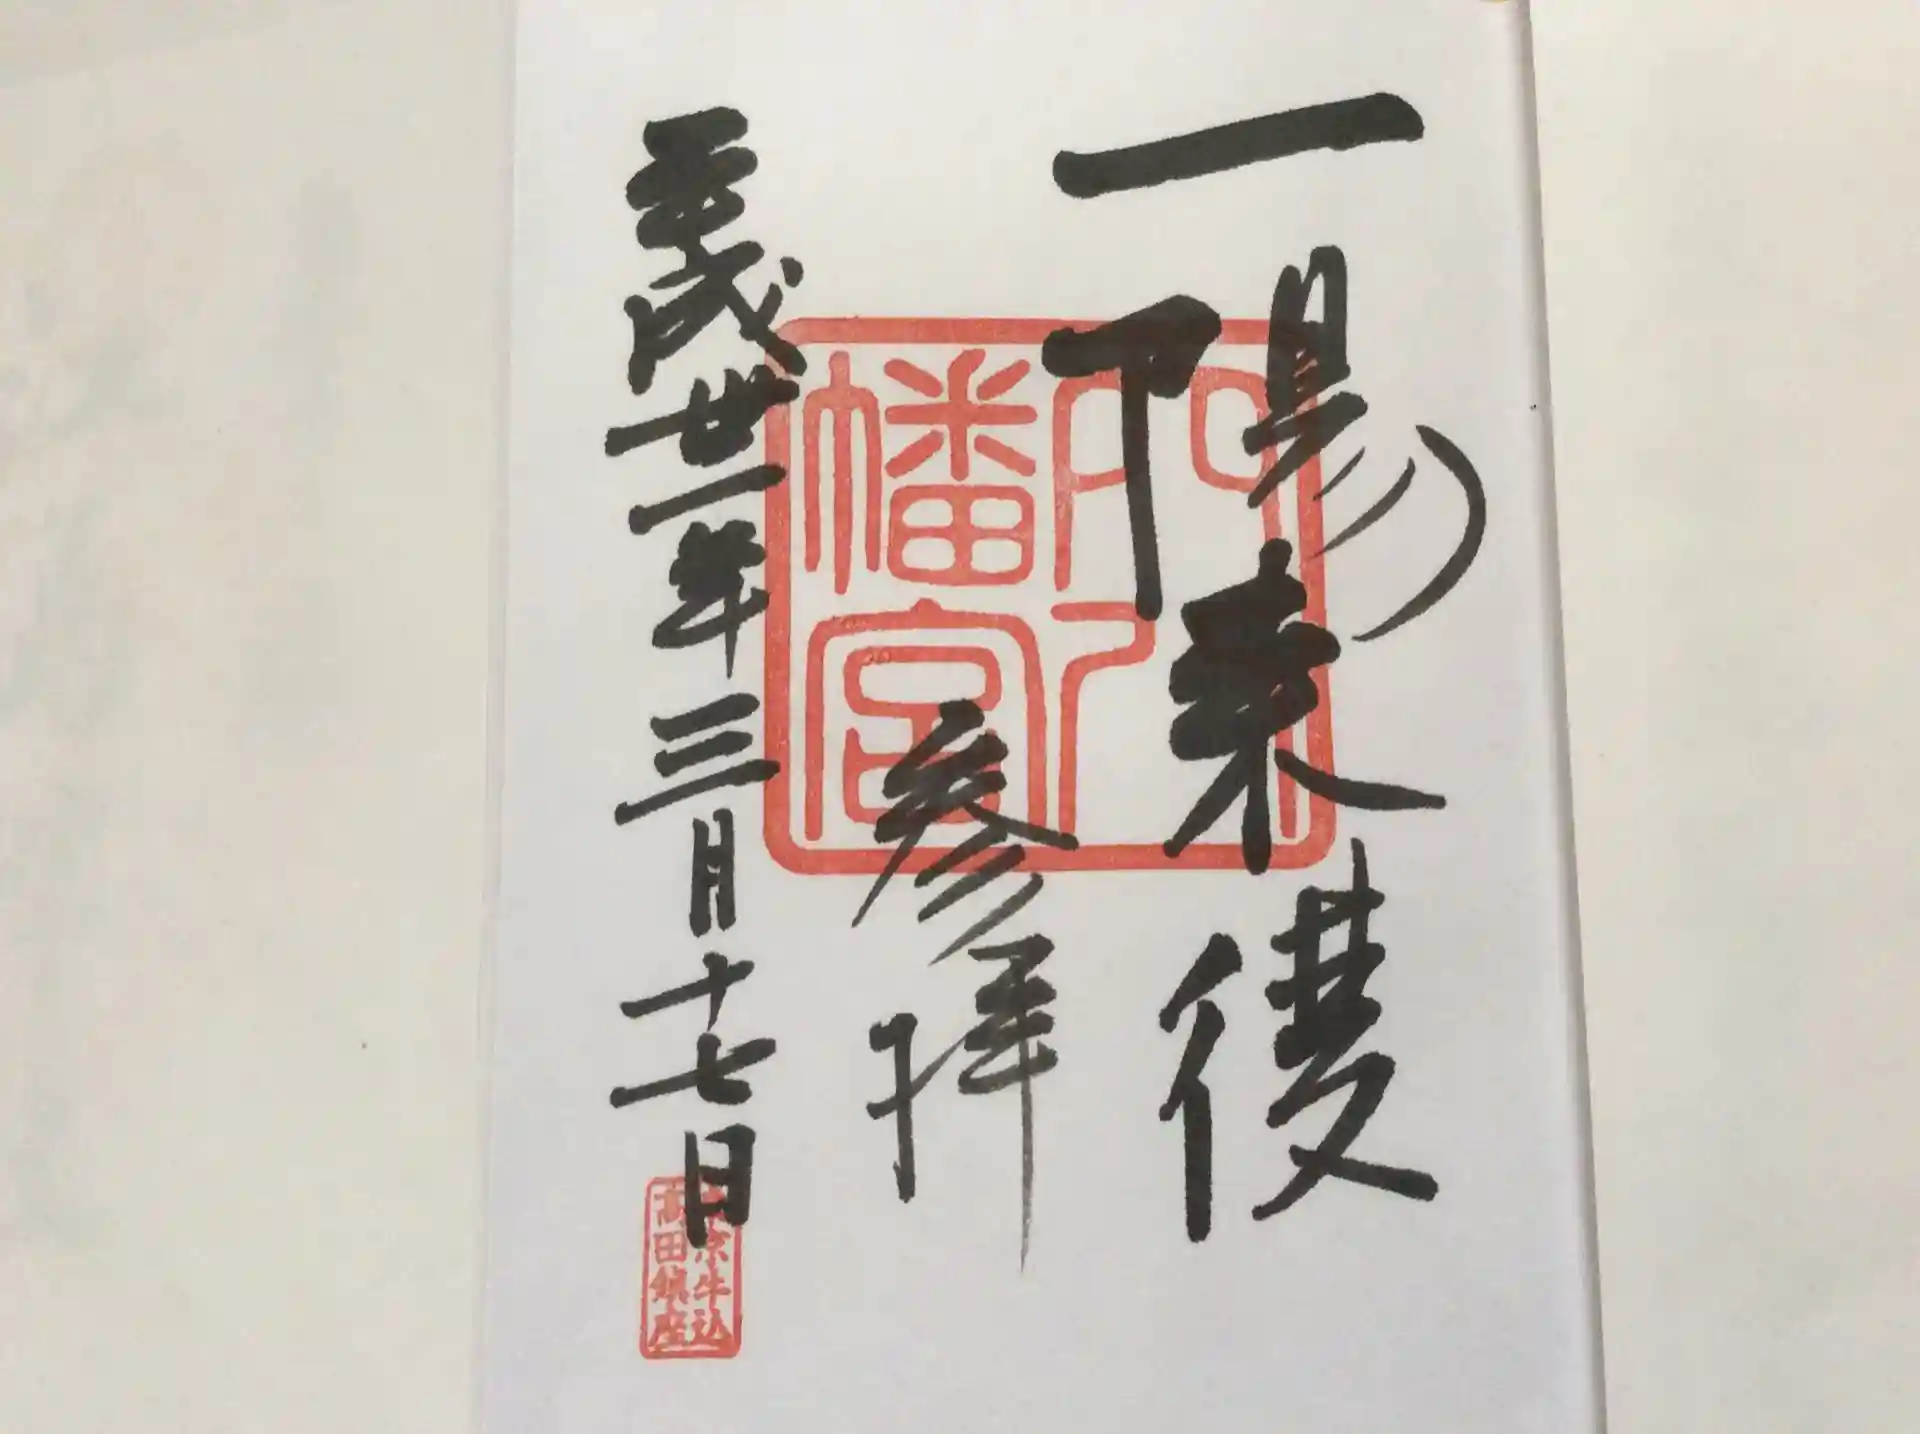 一陽来復
参拝
平成丗一年三月十七日
穴八幡宮
東京牛込
高田鎮座